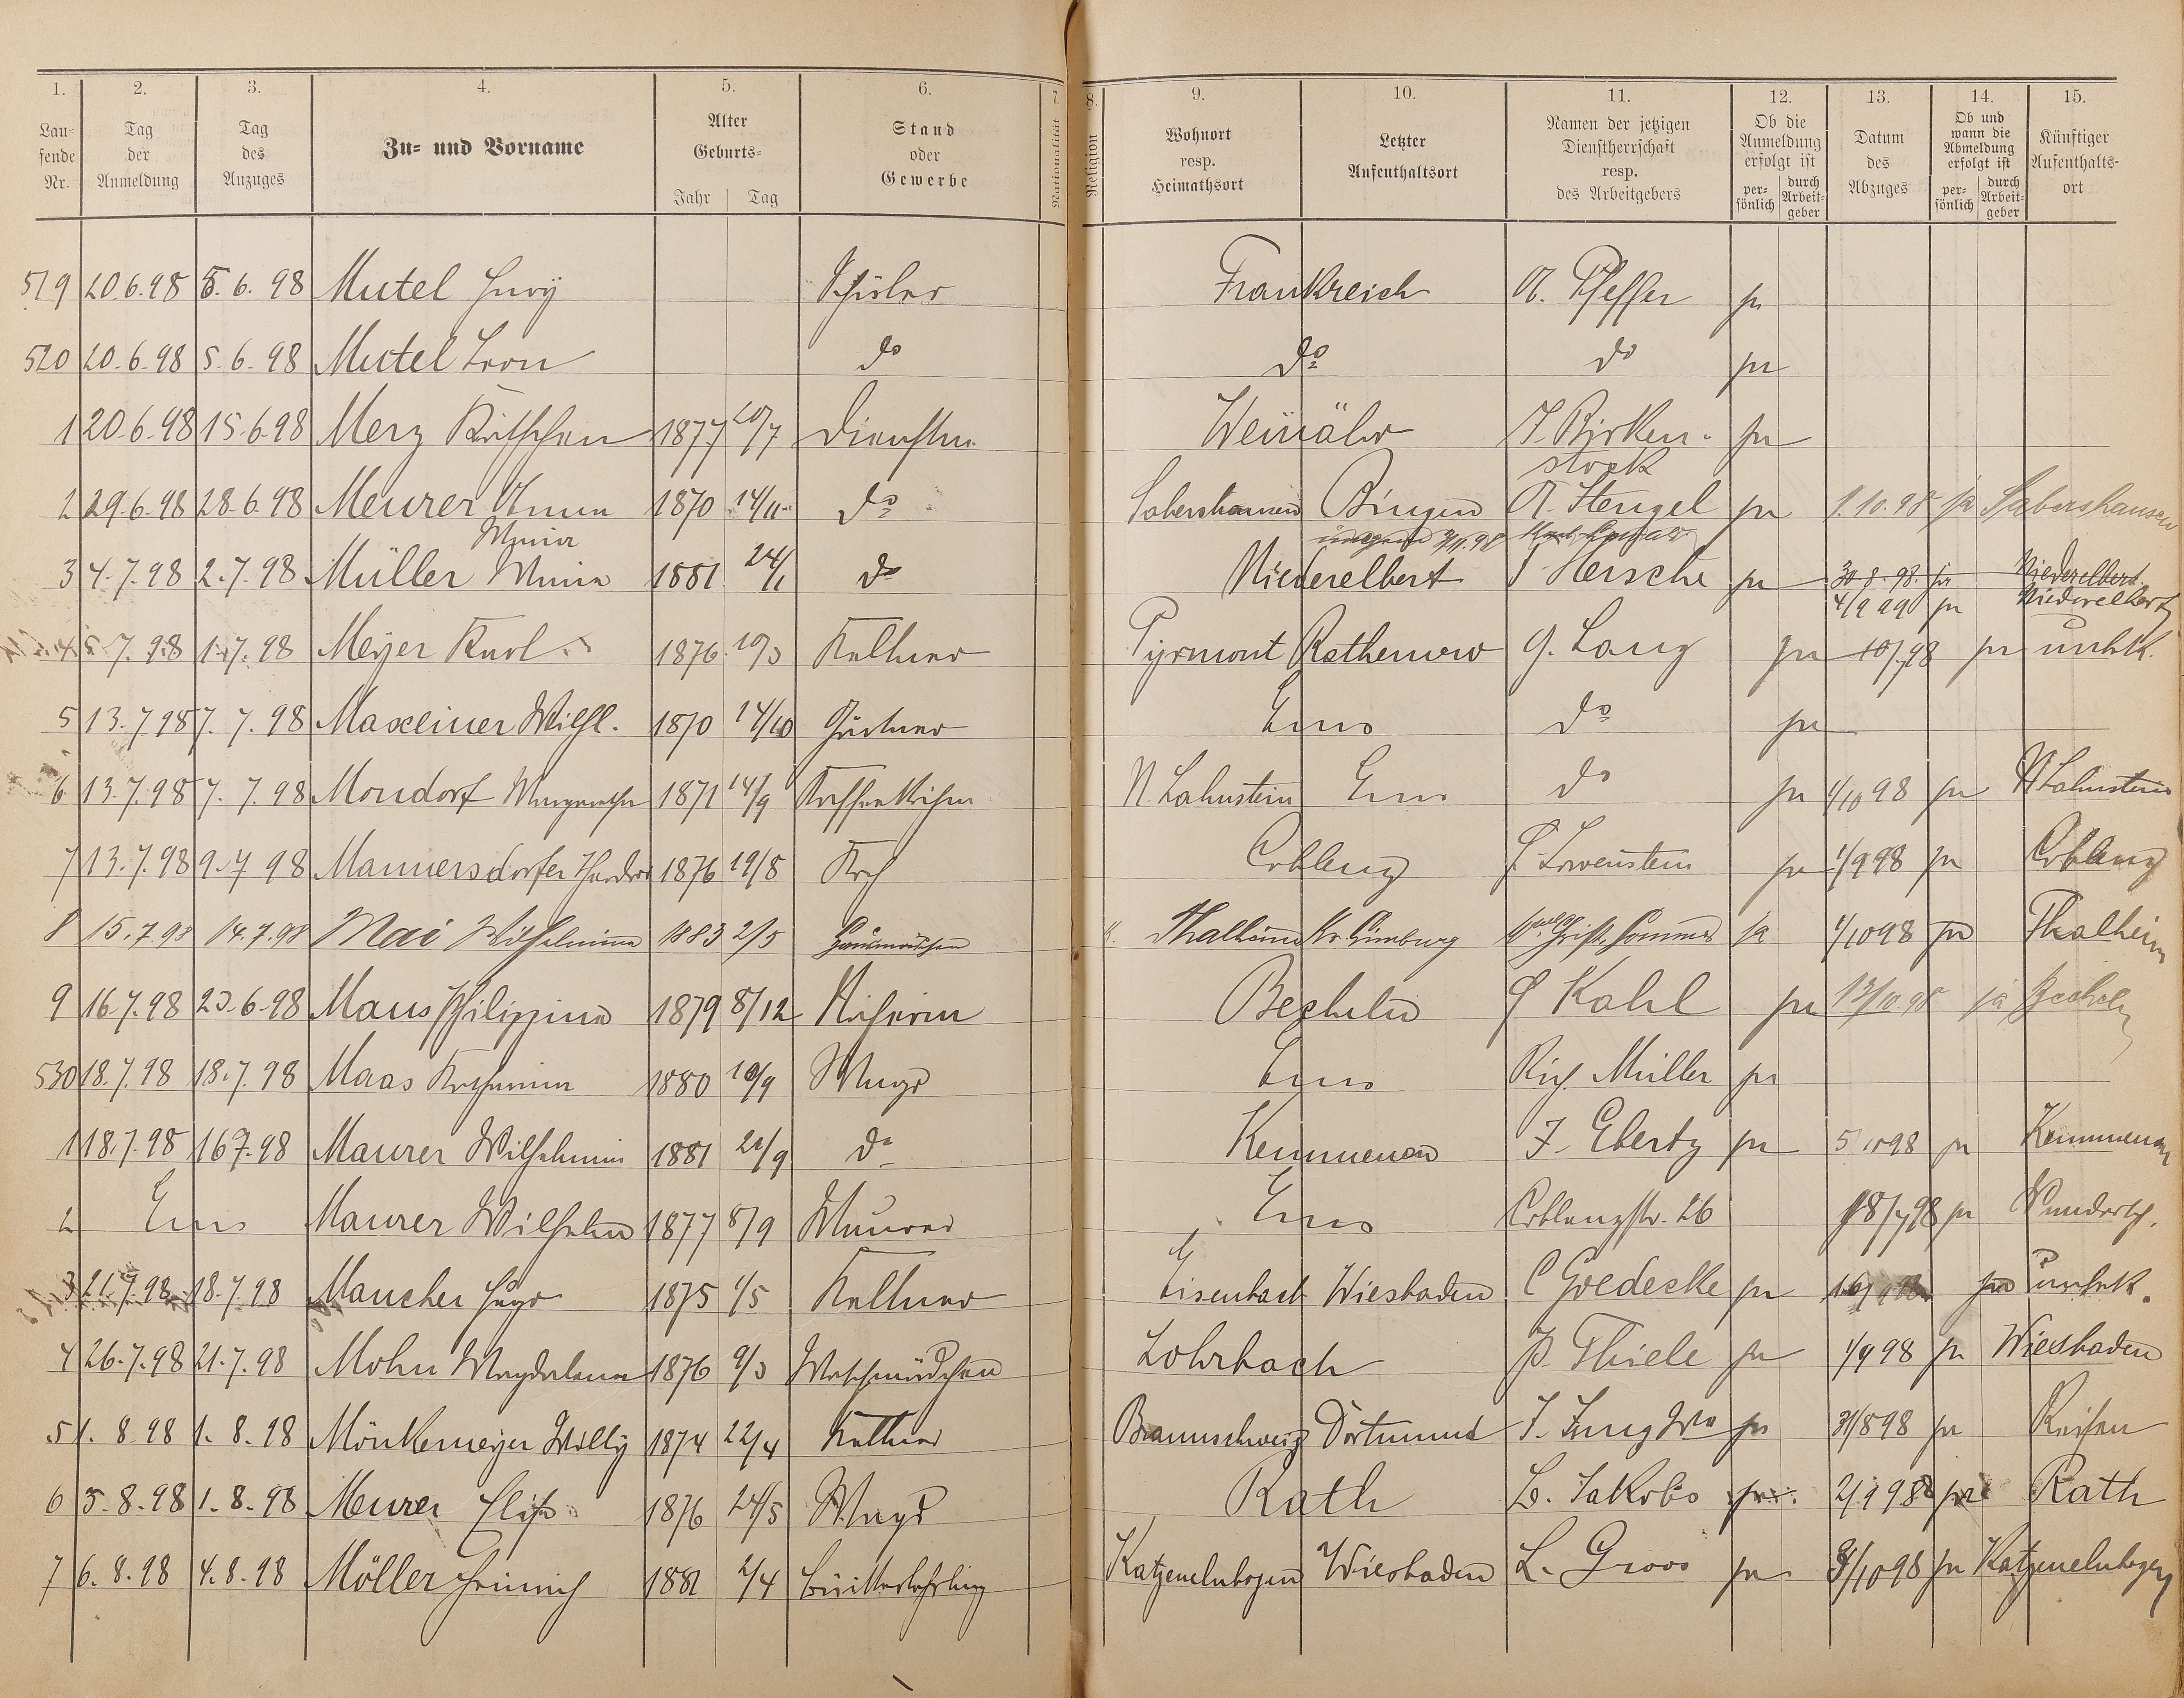 1. 2. 3. 4. 5. 6. 7. 8. 9. 10. 11. 12. 13. 14. 15.
Lau-
fende
Nr.
Tag
der
Anmeldung
Tag
des
Anzuges
Zu- und Vorname
Alter
Geburts-
Jahr Tag
Stand
oder
Gewerbe
Nationalität
Religion
Wohnort
resp.
Heimathsort
Letzter
Aufenthaltsort
Namen der jetzigen
Dienstherrschaft
resp.
des Arbeitgebers
Ob die
Anmeldung
erfolgt ist
per-
sönlich
durch
Arbeit-
geber
Datum
des
Abzuges
Ob und
wann die
Abmeldung
erfolgt ist
per-
sönlich
durch
Arbeit-
geber
Künftiger
Aufenthalts-
ort
519 20.6.98 5.6.98 Mutel Schüler Frankreich A. Pfeffer ja
520 20.6.98 5.6.98 Mutel Leon do do do ja
1 20.6.98 15.6.98 Merz Kättchen 1877 20/7 Dienstm. Weinähr J. Birken-
stock
2 29.6.98 28.6.98 Meurer Anna 1870 14/11 do Sabershausen Bingen A. Stengel ja 1.10.98 ja Sabershausen
Minna
3 4.7.98 2.7.98 Müller Minna 1881 24/1 do Niederelbert Hersche ja 30.8.98. ja Niederelbert.
4/9 99 ja Niederelbert
4 5.7.98 1.7.98 Meyer Karl 1876 10/3 Kellner Pyrmont Rathenow G. Lang ja 10/7 98 ja unbk.
5 13.7.98 7.7.98 Maxeiner Wilh. 1870 14/10 Gärtner Ems do ja
6 13.7.98 7.7.98 Mondorf Margarethe 1871 14/9 N. Lahnstein Ems do ja 1/10 98 ja N Lahnstein
7 13.7.98 9.7.98 Mannersdorfer 1876 19/8 Koch Coblenz Löwenstein ja 1/9 98 ja Coblenz
8 15.7.98 14.7.98 Mai Wilhelmine 1883 2/5 Hausmädchen Thalheim Kr. Limburg Christ. Sommer ja 1/10 98 ja Thalheim
9 16.7.98 23.6.98 Maus Philippine 1879 8/12 Näherin Becheln Kahl ja 13/10.98 ja Becheln
530 18.7.98 18.7.98 Maas Katharina 1880 10/9 Magd Ems Rich. Müller ja
1 18.7.98 16.7.98 Maurer Wilhelmine 1881 21/9 do Kemmenau J. Ebertz ja 98 ja Kemmenau
2 Ems Maurer Wilhelm 1877 8/9 Maurer Ems Coblenzstr. 26 18/7 98 ja Wandersch.
3 21.7.98 18.7.98 Maucher Hugo 1875 1/5 Kellner Eisenbach Wiesbaden C Goedecke ja ja unbek.
4 26.7.98 21.7.98 Mohn Magdalena 1876 9/3 Waschmädchen Lohrbach P. Thiele ja 1/9 98 ja Wiesbaden
5 1.8.98 1.8.98 Mönkemeyer Willy 1874 22/4 Kellner Braunschweig Dortmund J. Jung Ww ja 31/8 98 ja Reisen
6 5.8.98 1.8.98 Meurer Elise 1876 24/5 Magd Rath L. Jakobs ja 2/9 98 ja Rath
7 6.8.98 4.8.98 Möller Heinrich 1881 2/4 Katzenelnbogen Wiesbaden L. Groos ja 3/10 98 ja Katzenelnbogen